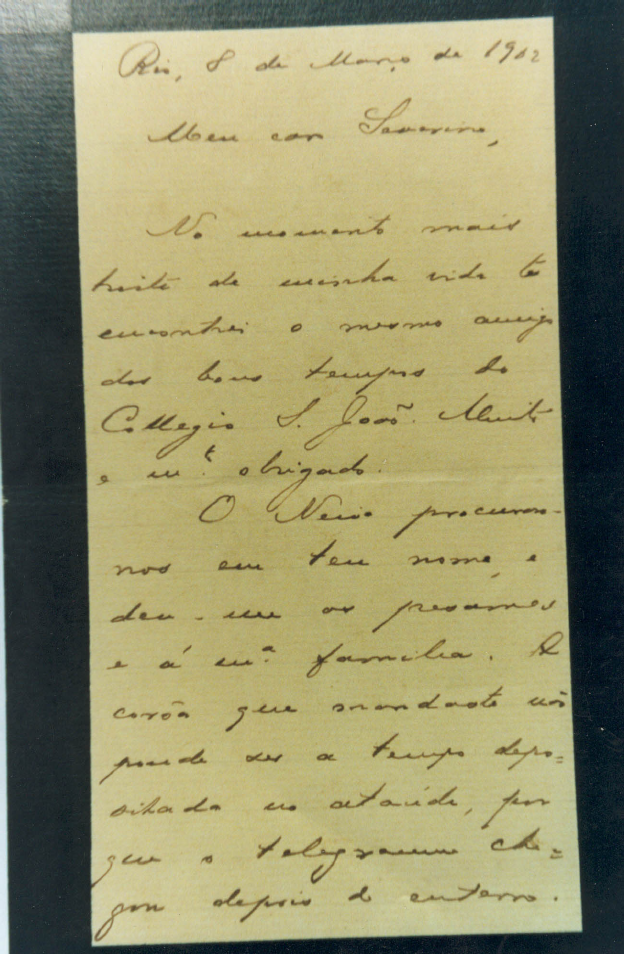 Rio, 8 de Março de 1902
Meu caro Severino,
No momento mais
triste de minha vida te
encontrei o mesmo amigo
dos bons tempos do
Collegio S. João. Muito
e m.to obrigado.
O Neiva procurou-
nos em teu nome, e
deu-me os pesames
e á m.a familia. A
corôa que mandaste não
poude ser a tempo depo=
sitada no ataúde, por
que o telegramma che=
gou depois do enterro.